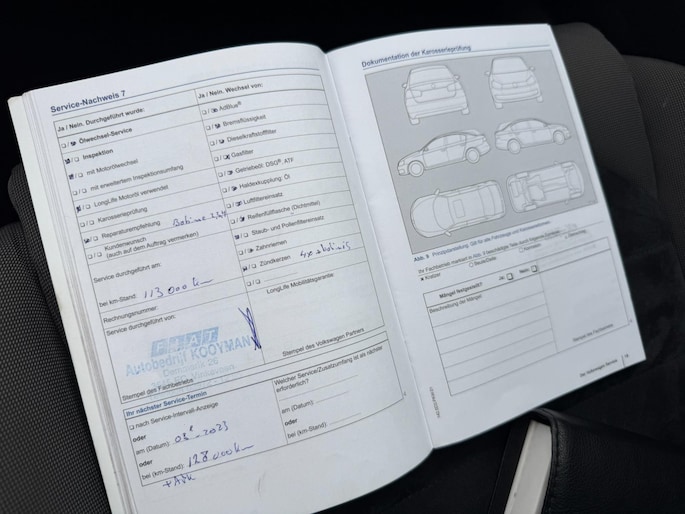 Service-Nachweis 7
Ja / Nein. Durchgeführt wurde:
Ölwechsel-Service
Inspektion
mit Motorölwechsel
mit erweitertem Inspektionsumfang
LongLife Motoröl verwendet
Karosserieprüfung
Reparaturempfehlung
Kundenwunsch
(auch auf dem Auftrag vermerken)
Service durchgeführt am:
bei km-Stand: 113 000 km
Rechnungsnummer:
Service durchgeführt von:
FIAT
Autobedrijf KOOYMAN
Stempel des Fachbetriebs
Ja / Nein. Wechsel von:
AdBlue®
Bremsflüssigkeit
Dieselkraftstofffilter
Gasfilter
Getriebeöl: DSG®, ATF
Haldexkupplung: Öl
Luftfiltereinsatz
Reifenfüllflasche (Dichtmittel)
Staub- und Pollenfiltereinsatz
Zahnriemen
Zündkerzen
LongLife Mobilitätsgarantie:
Stempel des Volkswagen Partners
Ihr nächster Service-Termin
nach Service-Intervall-Anzeige
oder
am (Datum): 2023
oder
bei (km-Stand): 128000 km
Welcher Service/Zusatzumfang ist als nächste
erforderlich?
am (Datum):
oder
bei (km-Stand):
Dokumentation der Karosserieprüfung
Abb. 9 Prinzipdarstellung. Gilt für alle Fahrzeuge und Karosserieformen.
Kratzer
Beule/Delle
Mängel festgestellt? Ja: Nein:
Beschreibung der Mängel:
Stempel des Fachbetriebs
Der Volkswagen Service